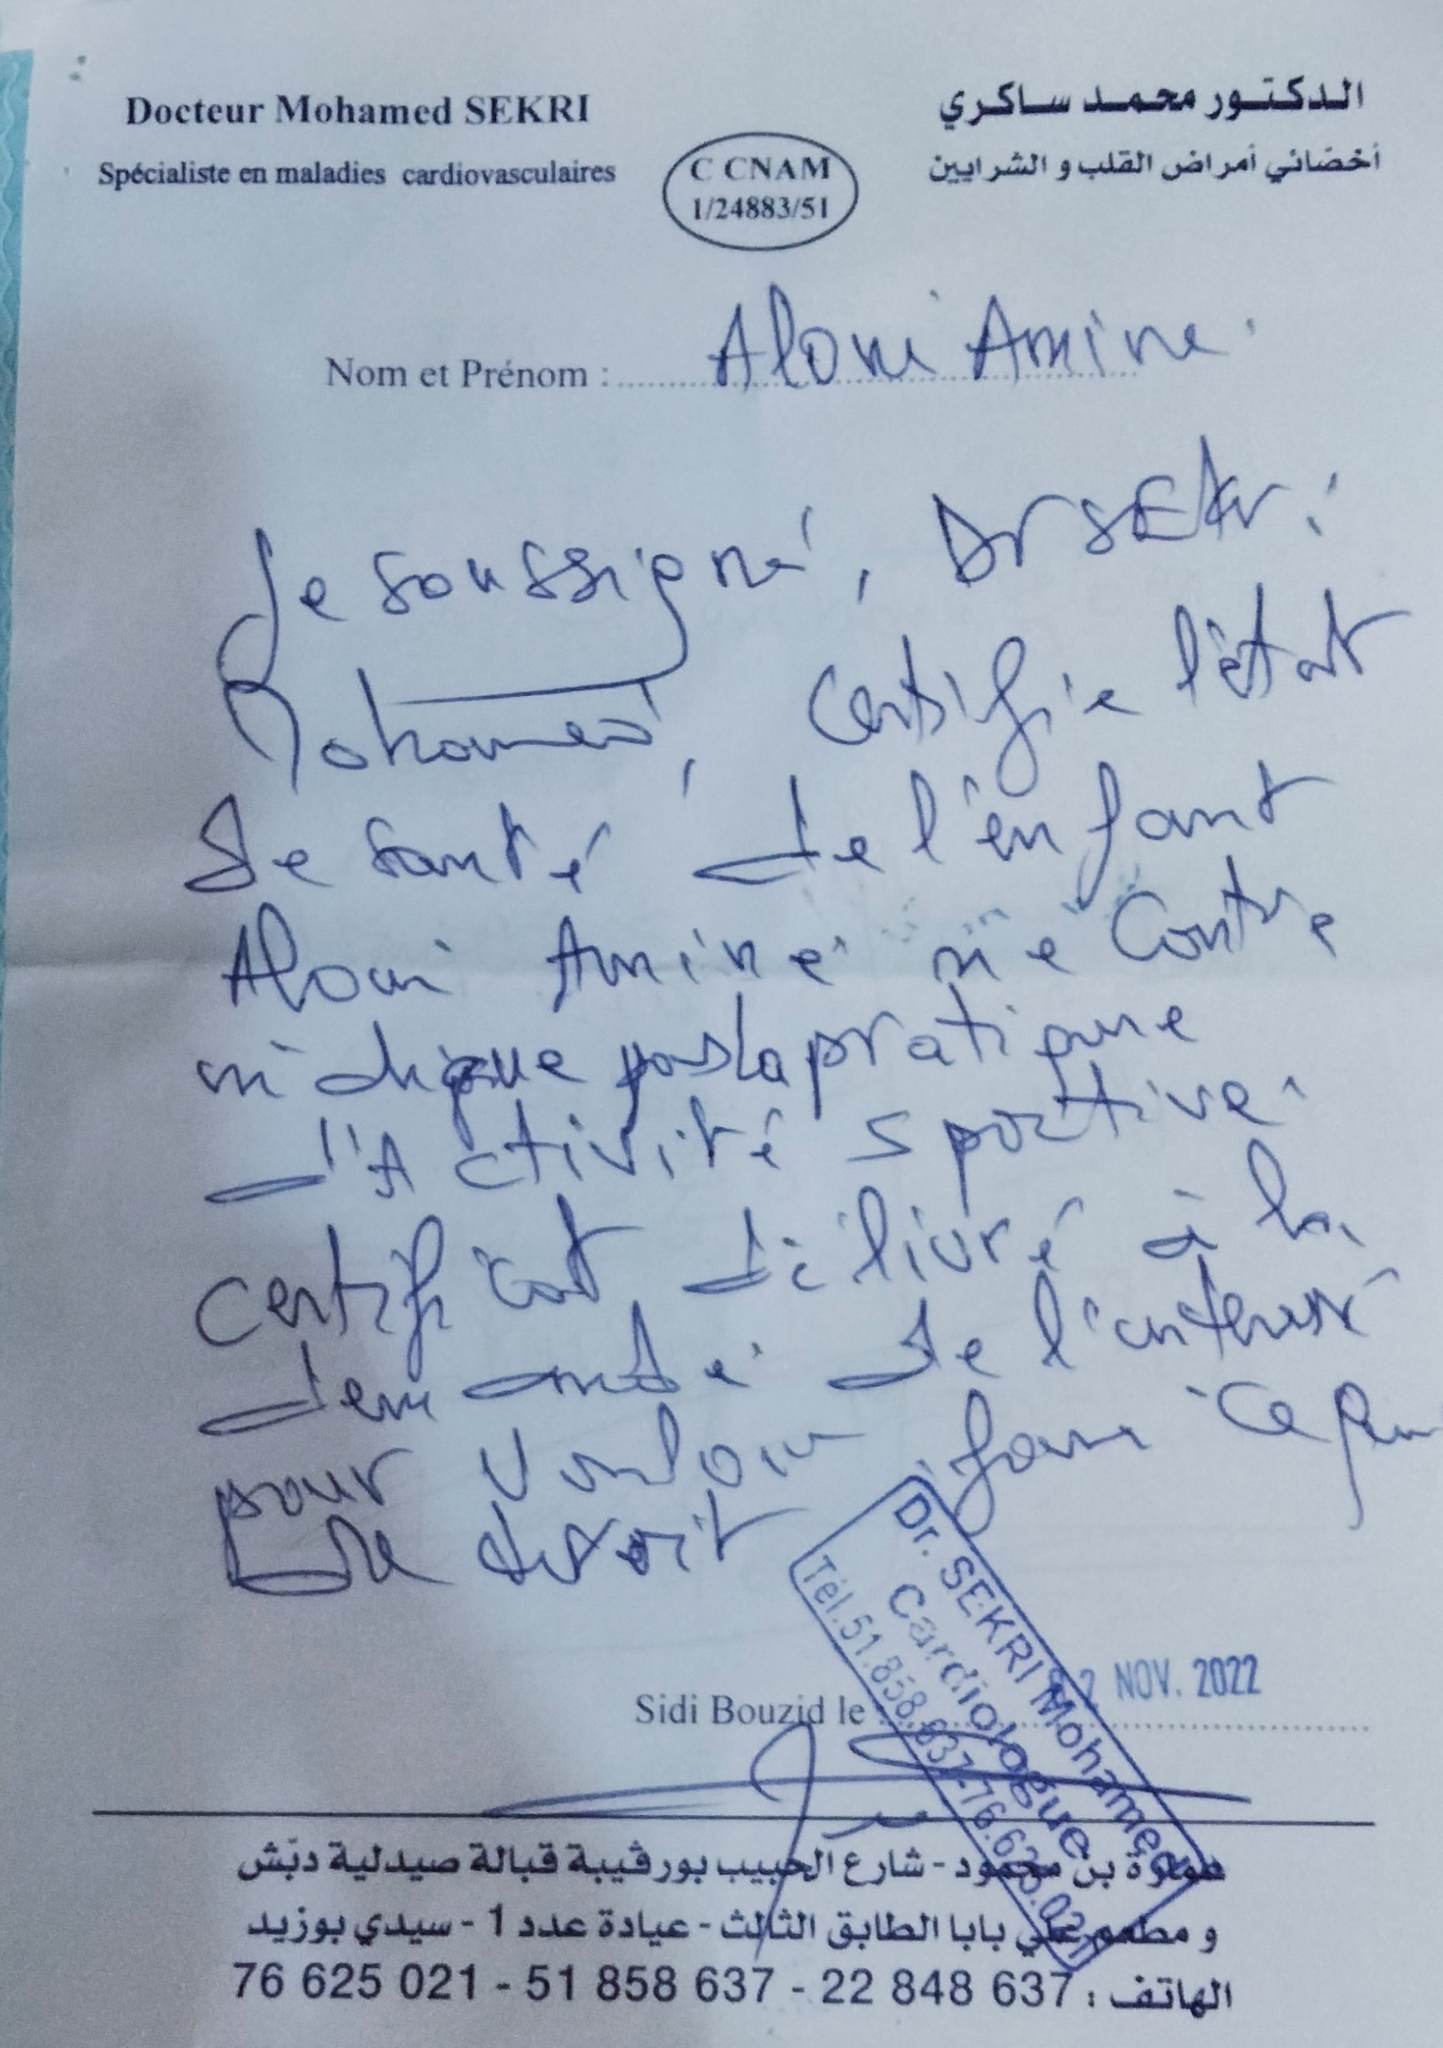 Docteur Mohamed SEKRI
Spécialiste en maladies cardiovasculaires
C CNAM
1/24883/51
الدكتور محمد ساكري
أخصائي أمراض القلب و الشرايين
Nom et Prénom : Aloui Amine
Je soussigné, Dr SEKri
Mohamed, certifie l'état
de santé de l'enfant
Aloui Amine ne contre
indique pas la pratique
d'Activité sportive.
certificat délivré à la
demande de l'intéressé
pour valoir faire ce que
de droit
Dr. SEKRI Mohamed
Cardiologue
Tél.51.858.637-76.625.021
Sidi Bouzid le 2 NOV. 2022
عمارة بن محمود - شارع الحبيب بورقيبة قبالة صيدلية دبّش
و مطعم علي بابا الطابق الثالث - عيادة عدد 1 - سيدي بوزيد
الهاتف : 76 625 021 - 51 858 637 - 22 848 637